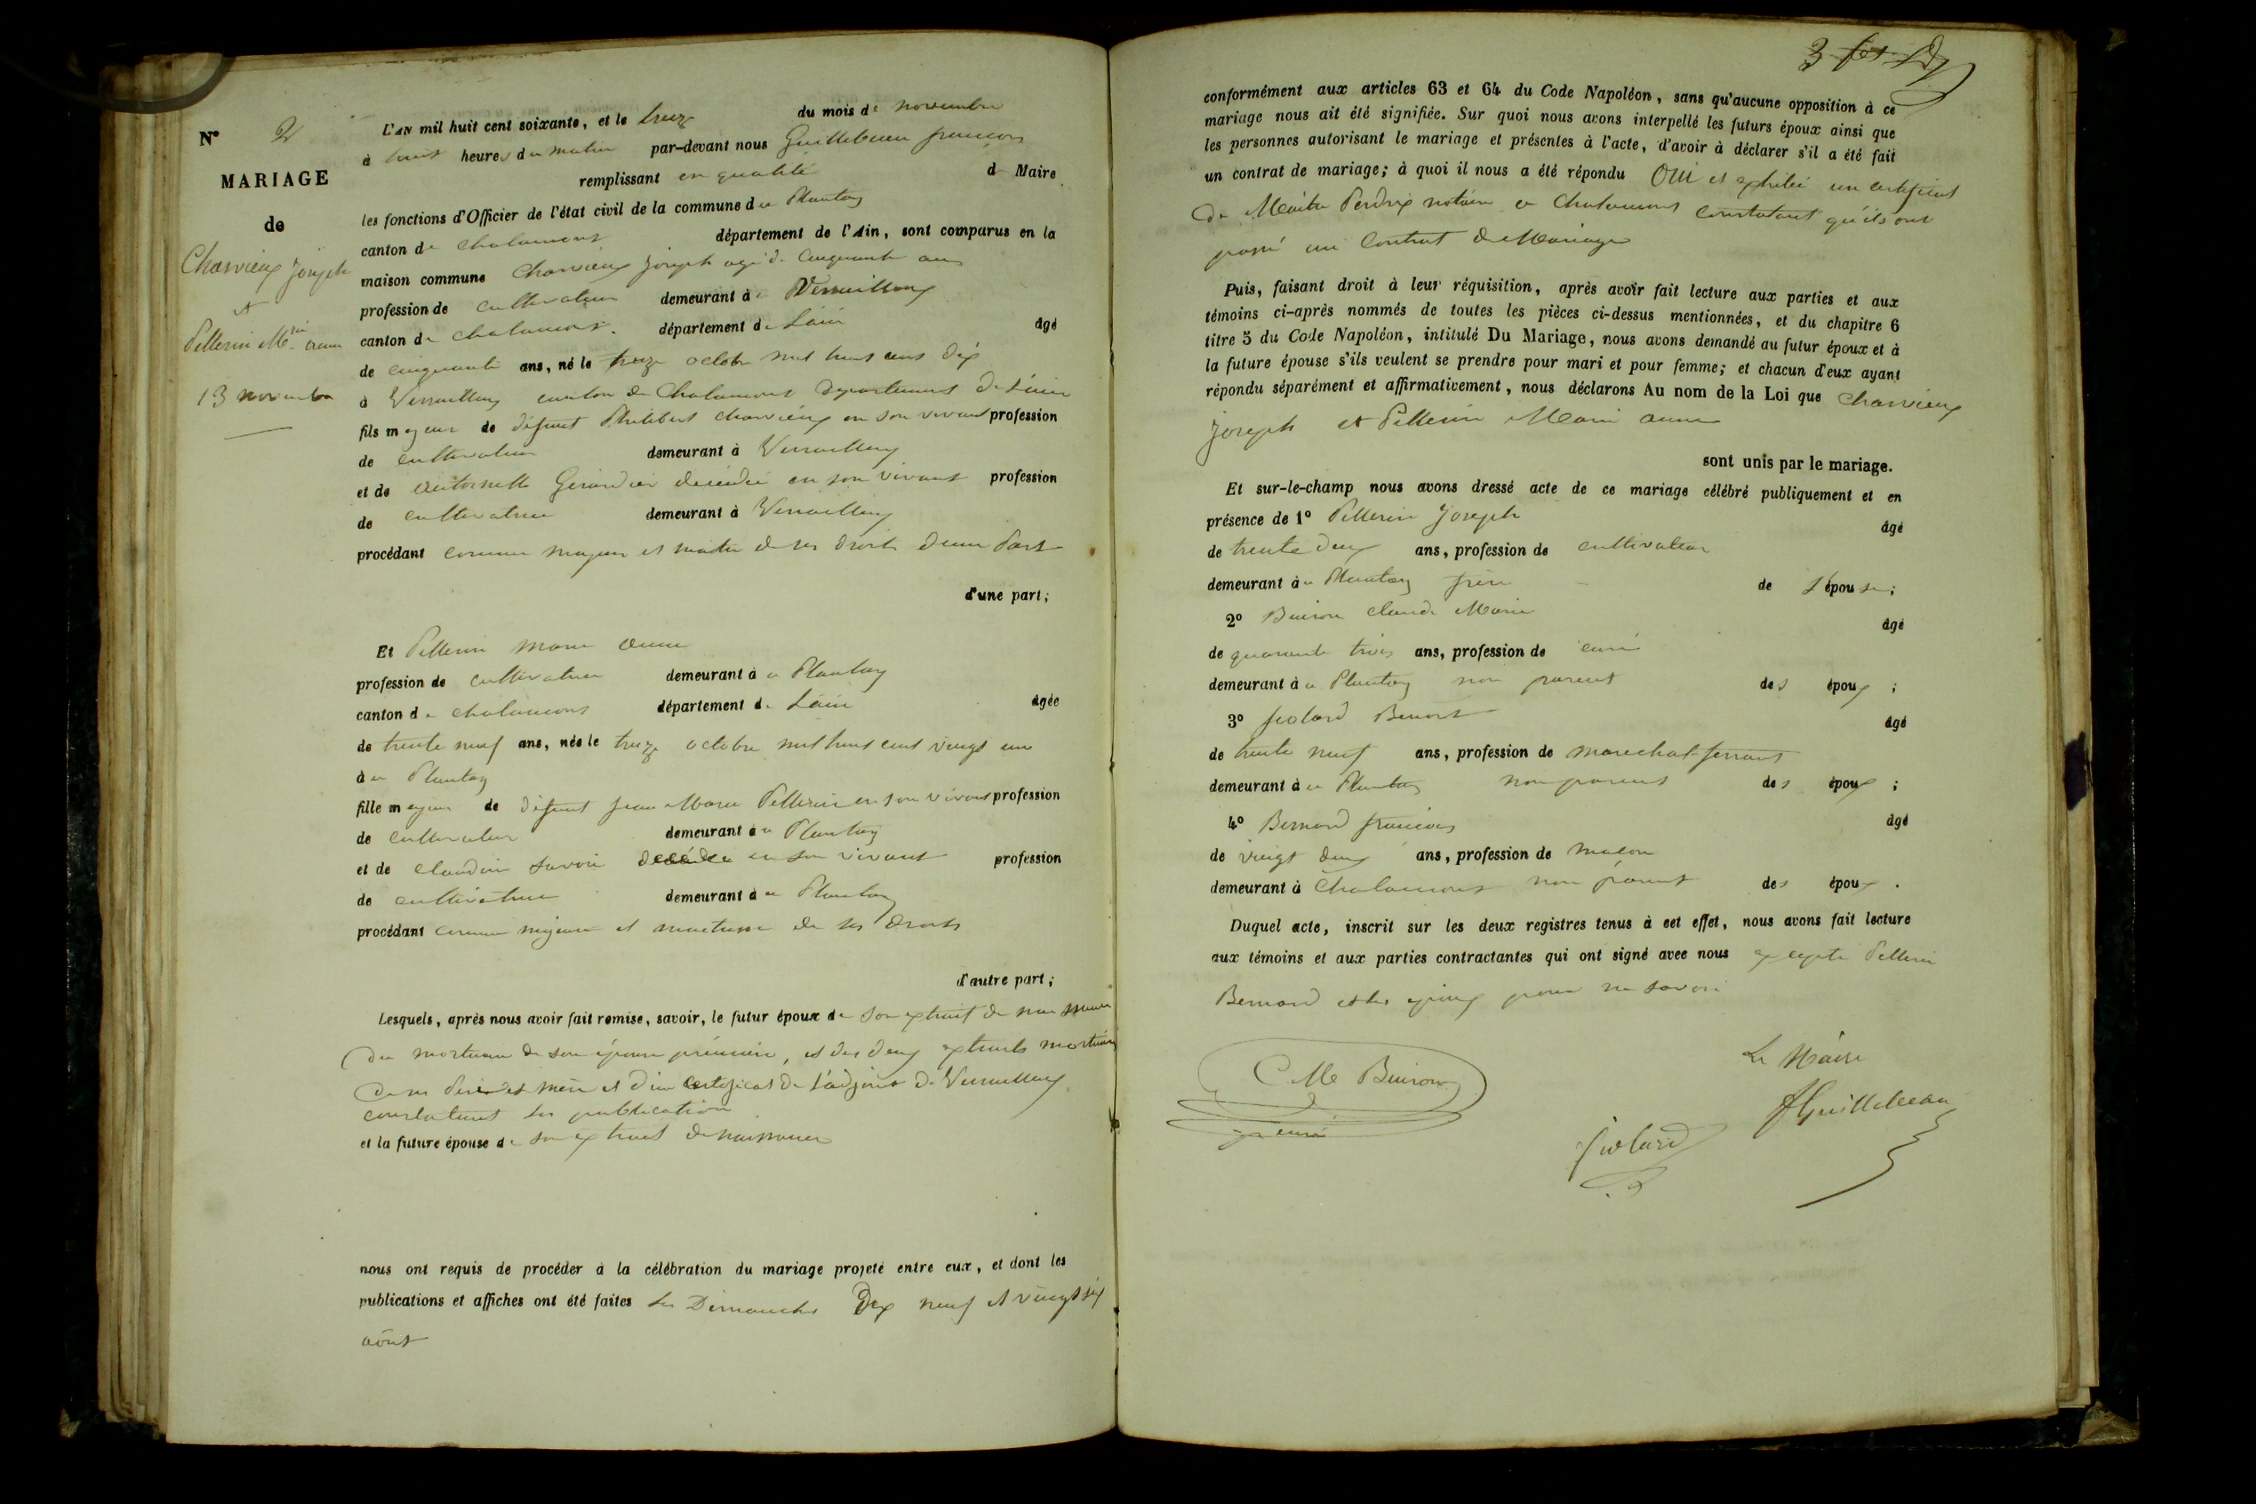 N° 2
MARIAGE
de
Charvieux Joseph
et
Pellerin Mie anne
13 novembre
L'AN mil huit cent soixante, et le treize du mois de novembre
à huit heures du matin par-devant nous Guillebeau francois
remplissant en qualité de Maire
les fonctions d'Officier de l'état civil de la commune du Plantay
canton de chalamont département de l'Ain, sont comparus en la
maison commune Charvieux Joseph agé de cinquante ans
profession de cultivateur demeurant à Versailleux
canton de chalamont département de Lain âgé
de cinquante ans, né le treize octobre mil huit cent dix
à Versailleux canton de Chalamont département de L'ain
fils majeur de défunt Philibert charvieux en son vivant profession
de cultivateur demeurant à Versailleux
et de antoinette Girardier décédée en son vivant profession
de cultivatrice demeurant à Versailleux
procédant comme majeur et maitre de ses droits d'une Part
d'une part;
Et Pellerin Marie anne
profession de cultivatrice demeurant à au Plantay
canton de chalamont département de Lain âgée
de trente neuf ans, née le treize octobre mil huit cent vingt un
à au Plantay
fille majeure de défunt Jean Marie Pellerin en son vivant profession
de cultivateur demeurant à au Plantay
et de claudine savoie décédée en son vivant profession
de cultivatrice demeurant à au Plantay
procédant comme majeure et maitresse de ses droits
d'autre part;
Lesquels, après nous avoir fait remise, savoir, le futur époux de son extrait de naissance
du mortuaire de son épouse première, et des deux extraits mortuaires
de ses Père et mère et d'un certificat de l'adjoint de Versailleux
constatant les publication
et la future épouse de son extrait de naissance
nous ont requis de procéder à la célébration du mariage projeté entre eux, et dont les
publications et affiches ont été faites les Dimanches Dix neuf et vingt six
août
conformément aux articles 63 et 64 du Code Napoléon, sans qu'aucune opposition à ce
mariage nous ait été signifiée. Sur quoi nous avons interpellé les futurs époux ainsi que
les personnes autorisant le mariage et présentes à l'acte, d'avoir à déclarer s'il a été fait
un contrat de mariage; à quoi il nous a été répondu OUI et exhibé un certificat
de Maitre Perdrix notaire a Chalamont constatant qu'ils ont
passé un Contrat de Mariage
Puis, faisant droit à leur réquisition, après avoir fait lecture aux parties et aux
témoins ci-après nommés de toutes les pièces ci-dessus mentionnées, et du chapitre 6
titre 5 du Code Napoléon, intitulé Du Mariage, nous avons demandé au futur époux et à
la future épouse s'ils veulent se prendre pour mari et pour femme; et chacun d'eux ayant
répondu séparément et affirmativement, nous déclarons Au nom de la Loi que Charvieux
Joseph et Pellerin Marie anne
sont unis par le mariage.
Et sur-le-champ nous avons dressé acte de ce mariage célébré publiquement et en
présence de 1° Pellerin Joseph âgé
de trente deux ans, profession de cultivateur
demeurant à au Plantay frère de l'épouse;
2° Buiron Claude Marie âgé
de quarante trois ans, profession de curé
demeurant à au Plantay non parent des époux;
3° Jiolard Benoit âgé
de trente neuf ans, profession de marechal ferrant
demeurant à au Plantay non parent des époux;
4° Bernard francois âgé
de vingt deux ans, profession de macon
demeurant à Chalamont non parent des époux.
Duquel acte, inscrit sur les deux registres tenus à cet effet, nous avons fait lecture
aux témoins et aux parties contractantes qui ont signé avec nous excepté Pellerin
Bernard et les époux pour ne savoir
C M Buiron
curé
Jiolard
Le Maire
f Guillebeau